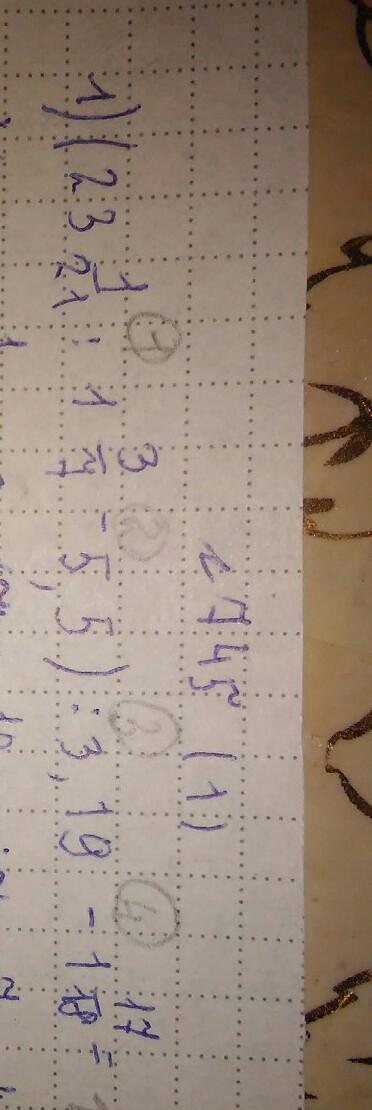 745 (1)
1 2 3 4
1) (23 1/21 : 1 3/7 - 5,5) : 3,19 - 1 17/18 =